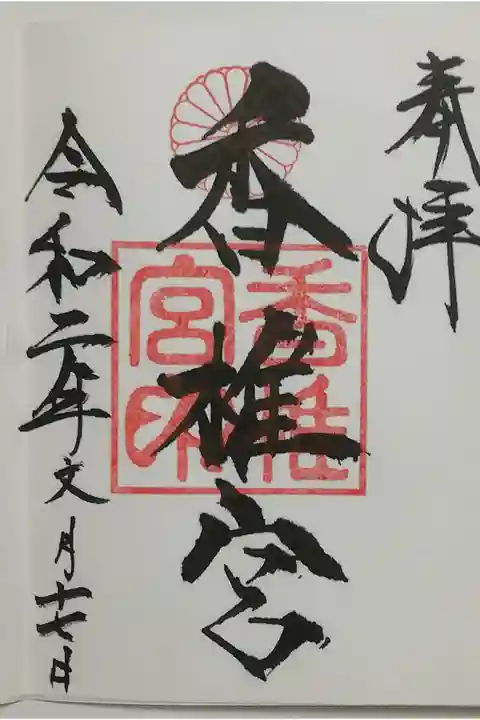 奉拝
香椎宮
香椎宮印
令和二年文月十七日